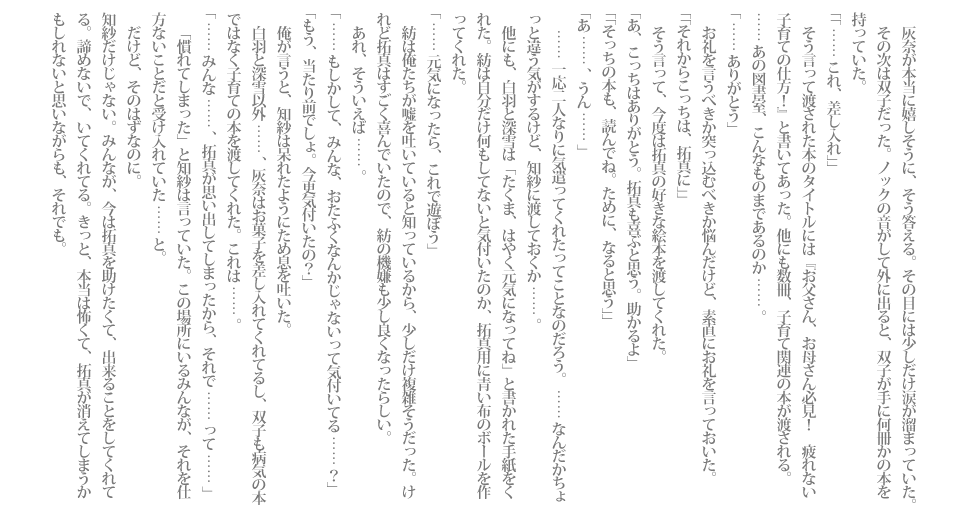 灰奈が本当に嬉しそうに、そう答える。その目には少しだけ涙が溜まっていた。
　その次は双子だった。ノックの音がして外に出ると、双子が手に何冊かの本を
持っていた。
「「……これ、差し入れ」」
　そう言って渡された本のタイトルには『お父さん、お母さん必見！　疲れない
子育ての仕方！』と書いてあった。他にも数冊、子育て関連の本が渡される。
……あの図書室、こんなものまであるのか……。
「……ありがとう」
　お礼を言うべきか突っ込むべきか悩んだけど、素直にお礼を言っておいた。
「「それからこっちは、拓真に」」
　そう言って、今度は拓真の好きな絵本を渡してくれた。
「あ、こっちはありがとう。拓真も喜ぶと思う。助かるよ」
「「そっちの本も、読んでね。ために、なると思う」」
「あ……、うん……」
　……一応二人なりに気遣ってくれたってことなのだろう。……なんだかちょ
っと違う気がするけど、知紗に渡しておくか……。
　他にも、白羽と深雪は「たくま、はやく元気になってね」と書かれた手紙をく
れた。紡は自分だけ何もしてないと気付いたのか、拓真用に青い布のボールを作
ってくれた。
「……元気になったら、これで遊ぼう」
　紡は俺たちが嘘を吐いていると知っているから、少しだけ複雑そうだった。け
れど拓真はすごく喜んでいたので、紡の機嫌も少し良くなったらしい。
　あれ、そういえば……。
「……もしかして、みんな、おたふくなんかじゃないって気付いてる……？」
「もう、当たり前でしょ。今更気付いたの？」
　俺が言うと、知紗は呆れたようにため息を吐いた。
　白羽と深雪以外……、灰奈はお菓子を差し入れてくれてるし、双子も病気の本
ではなく子育ての本を渡してくれた。これは……。
「……みんな……、拓真が思い出してしまったから、それで……って……」
　「慣れてしまった」と知紗は言っていた。この場所にいるみんなが、それを仕
方ないことだと受け入れていた……と。
　だけど、そのはずなのに。
　知紗だけじゃない。みんなが、今は拓真を助けたくて、出来ることをしてくれて
る。諦めないで、いてくれてる。きっと、本当は怖くて、拓真が消えてしまうか
もしれないと思いながらも、それでも。